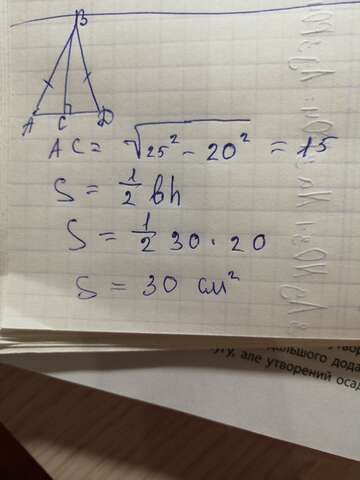 B
A C D
AC = √25² - 20² = 15
S = 1/2 bh
S = 1/2 30 · 20
S = 30 см²
дальшого дода
але утворений осад